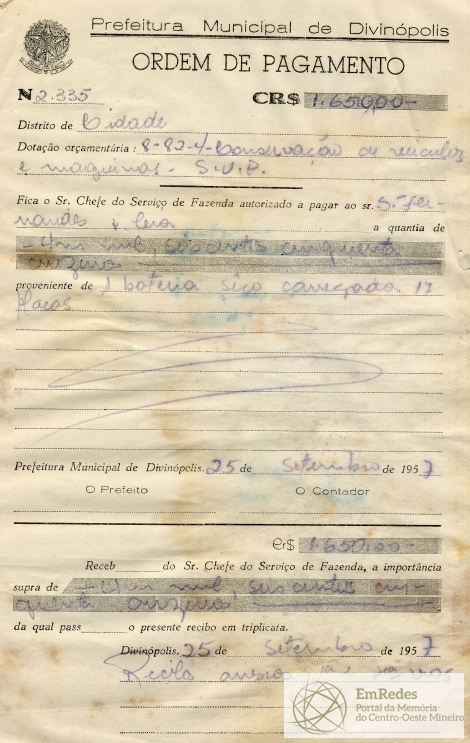 Prefeitura Municipal de Divinópolis
ORDEM DE PAGAMENTO
N 2.335 CR$ 1.650,00-
Distrito de Cidade
Dotação orçamentária : 8-82-4-Conservação de veiculos
e maquinas - S.V.P.
Fica o Sr. Chefe do Serviço de Fazenda autorizado a pagar ao sr. S. Fer-
nandes & Cia a quantia de
- Um mil, seiscentos cinquenta
cruzeiros
proveniente de 1 bateria carregada 17
placas
Prefeitura Municipal de Divinópolis, 25 de Setembro de 1957
O Prefeito O Contador
Cr$ 1.650,00-
Receb do Sr. Chefe do Serviço de Fazenda, a importância
supra de - Um mil, seiscentos cin-
quenta cruzeiros
da qual pass o presente recibo em triplicata.
Divinópolis, 25 de Setembro de 1957
EmRedes
Portal da Memória
do Centro-Oeste Mineiro